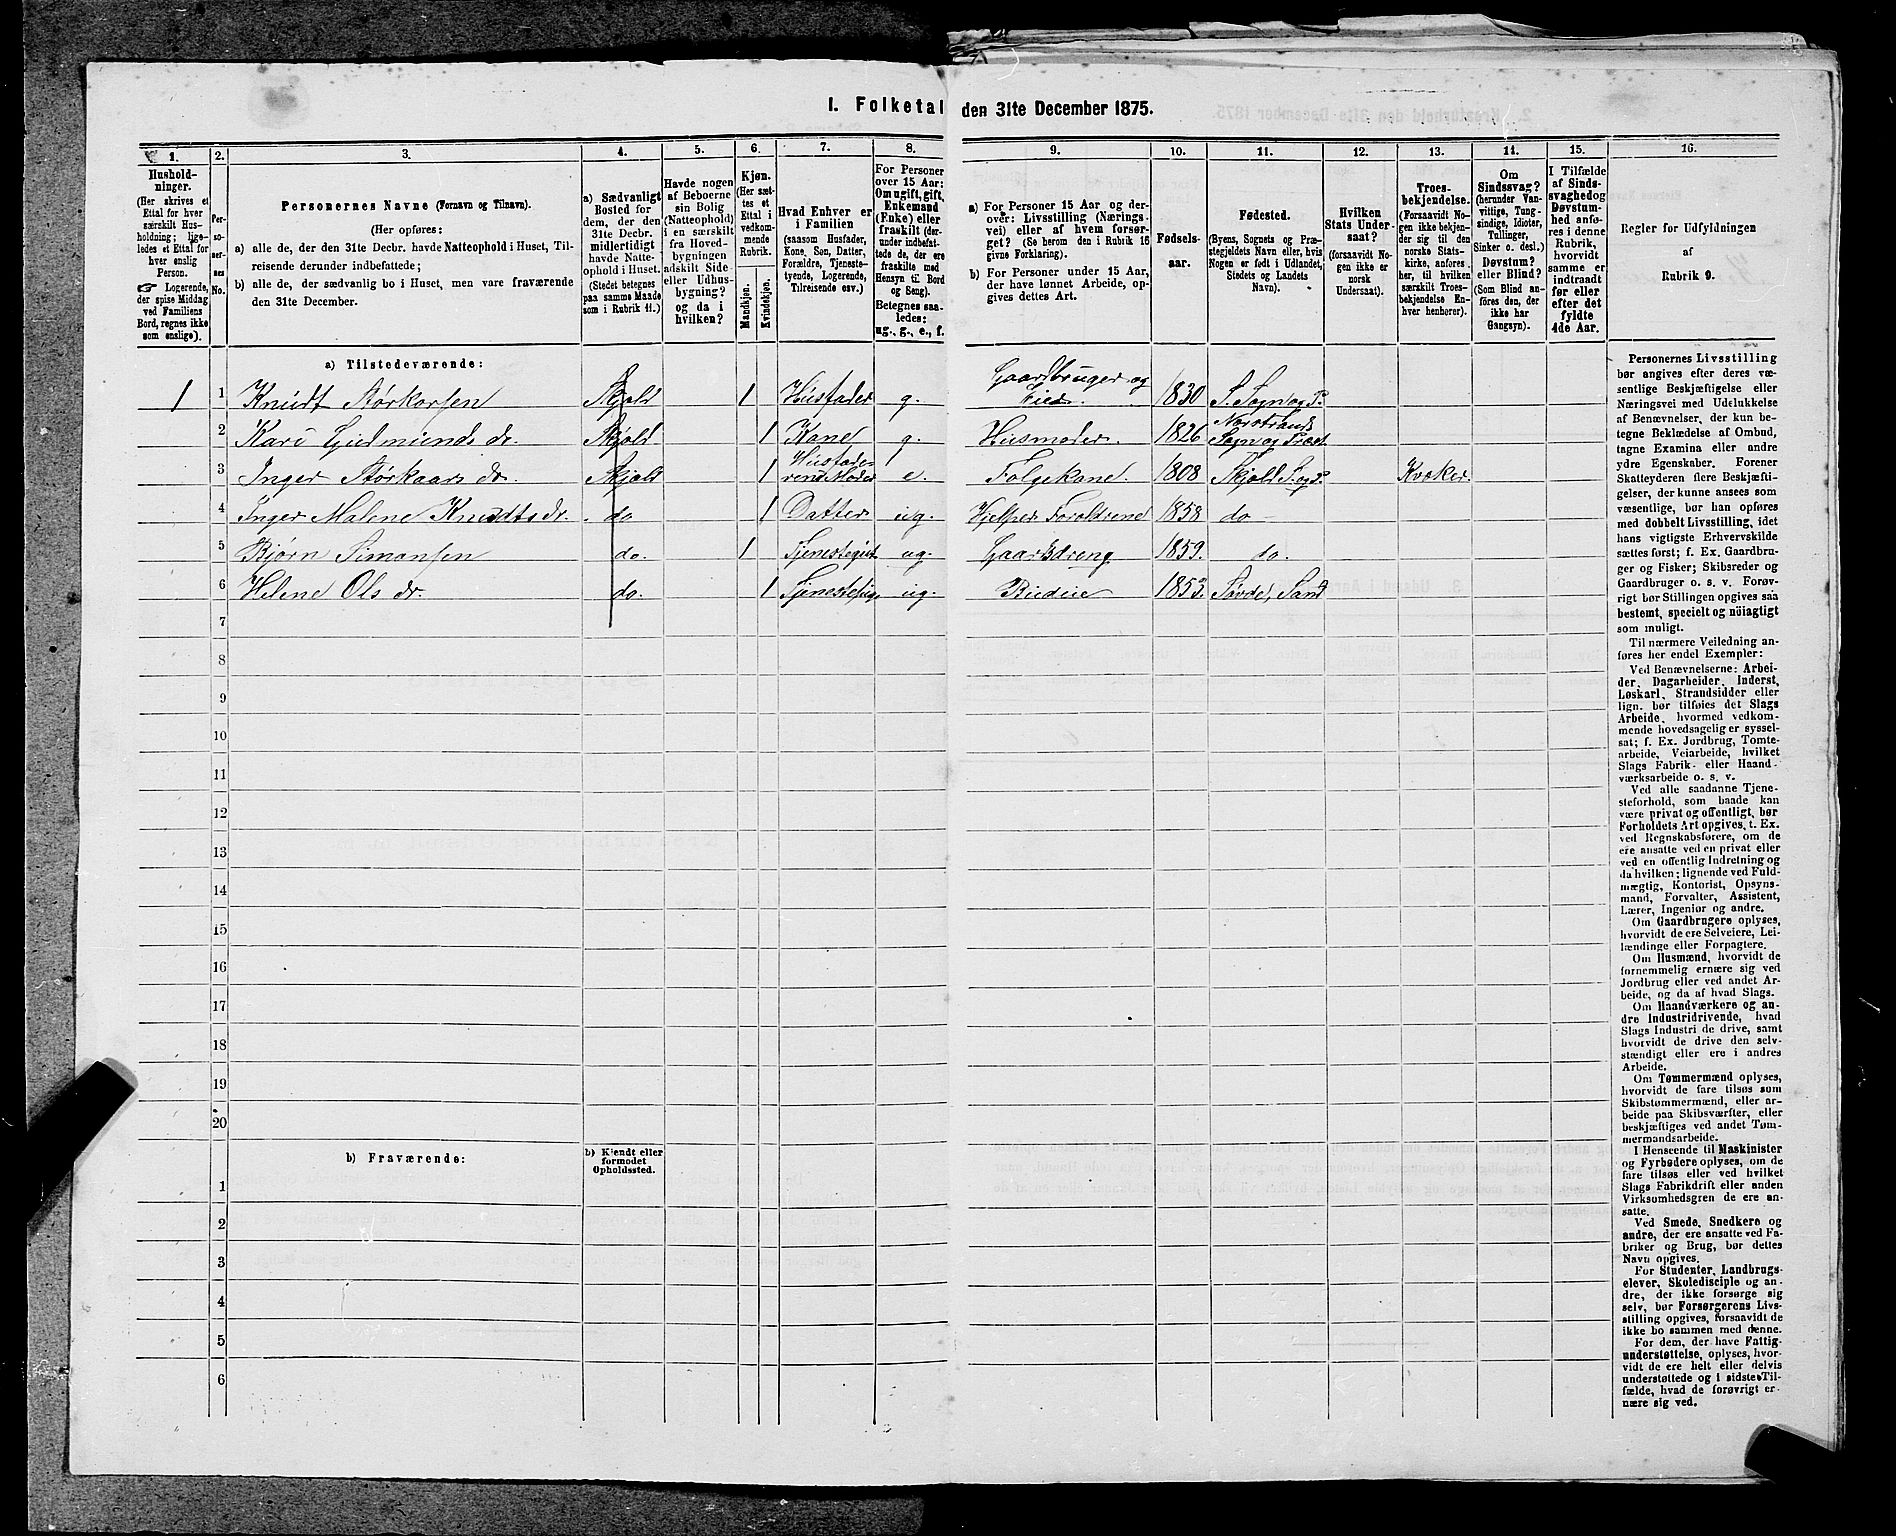 I. Folketal den 31te December 1875.
1. 2. 3. 4. 5. 6. 7. 8. 9. 10. 11. 12. 13. 14. 15. 16.
Hushold-
ninger.
(Her skrives et
Ettal for hver
særskilt Hus-
holdning; lige-
ledes et Ettal for
hver enslig
Person.
☞ Logerende,
der spise Middag
ved Familiens
Bord, regnes ikke
som enslige).
Per-
so-
ner-
nes
No.
Personernes Navne (Fornavn og Tilnavn).
(Her opføres:
a) alle de, der den 31te Decbr. havde Natteophold i Huset, Til-
reisende derunder indbefattede;
b) alle de, der sædvanlig bo i Huset, men vare fraværende
den 31te December.
a) Sædvanligt
Bosted for
dem, der den
31te Decbr.
midlertidigt
havde Natte-
ophold i Huset.
(Stedet betegnes
paa samme Maade
som i Rubrik 11.)
Havde nogen
af Beboerne
sin Bolig
(Natteophold)
i en særskilt
fra Hoved-
bygningen
adskilt Side-
eller Udhus-
bygning?
og da i
hvilken?
Kjøn.
(Her sæt-
tes et
Ettal i
vedkom-
mende
Rubrik.
Mandkjøn.
Kvindekjøn.
Hvad Enhver er
i Familien
(saasom Husfader,
Kone, Søn, Datter,
Forældre, Tjeneste-
tyende, Logerende,
Tilreisende osv.)
For Personer
over 15 Aar:
Om ugift, gift,
Enkemand
(Enke) eller
fraskilt (der-
under indbefat-
tede de, der ere
fraskilte med
Hensyn til Bord
og Seng).
Betegnes saa-
ledes:
ug., g., e., f.
a) For Personer 15 Aar og der-
over: Livsstilling (Nærings-
vei) eller af hvem forsør-
get? (Se herom den i Rubrik 16
givne Forklaring).
b) For Personer under 15 Aar,
der have lønnet Arbeide, op-
gives dettes Art.
Fødsels-
aar.
Fødested.
(Byens, Sognets og Præ-
stegjeldets Navn eller, hvis
Nogen er født i Udlandet,
Stedets og Landets
Navn).
Hvilken
Stats Under-
saat?
(forsaavidt No-
gen ikke er
norsk
Undersaat).
Troes-
bekjendelse.
(Forsaavidt No-
gen ikke bekjen-
der sig til den
norske Stats-
kirke, anføres
her, til hvilken
særskilt Troes-
bekjendelse En-
hver henhører).
Om
Sindssvag?
(herunder Van-
vittige, Tung-
sindige, Idioter,
Tullinger,
Sinker o. desl.)
Døvstum?
eller Blind?
(Som Blind an-
føres den, der
ikke har
Gangsyn).
I Tilfælde
af Sinds-
svaghed og
Døvstum-
hed anfø-
res i denne
Rubrik,
hvorvidt
samme er
indtraadt
før eller
efter det
fyldte
4de Aar.
Regler for Udfyldningen
af
Rubrik 9.
a) Tilstedeværende:
1 1 Knudt Størkorsen Skjold 1 Husfader g. Gaardbruger og 1830 S. Sogn og P.
2 Kari Gudmunds dr. Skjold 1 Kone g. Husmoder. 1826 Nerstrands Sogn og Præst
3 Inger Størkaars dr. Skjold 1 Husfade- rens Moder e. Folgekone. 1808 Skjold S. og P. Kvæker.
4 Inger Malene Knudts dr. do 1 Datter ug. Hjelper Foroldrene 1858 do
5 Bjørn Simonsen do. 1 Tjenestegut ug. Gaardsdreng 1859. do.
6 Helene Ols dr. do. 1 Tjenestepige ug. Budeie 1853. Søvde, Sand
7
8
9
10
11
12
13
14
15
16
17
18
19
20
b) Fraværende:
b) Kjendt eller
formodet
Opholdssted.
1
2
3
4
5
6
Personernes Livsstilling
bør angives efter deres væ-
sentlige Beskjæftigelse eller
Næringsvei med Udelukkelse
af Benævnelser, der kun be-
tegne Beklædelse af Ombud,
tagne Examina eller andre
ydre Egenskaber. Forener
Skatteyderen flere Beskjæfti-
gelser, der kunne ansees som
væsentlige, bør han opføres
med dobbelt Livsstilling, idet
hans vigtigste Erhvervskilde
sættes først; f. Ex. Gaardbru-
ger og Fisker; Skibsreder og
Gaardbruger o. s. v. Forøv-
rigt bør Stillingen opgives saa
bestemt, specielt og nöiagtigt
som muligt.
Til nærmere Veiledning an-
føres her endel Exempler:
Ved Benævnelserne: Arbei-
der, Dagarbeider, Inderst,
Løskarl, Strandsidder eller
lign. bør tilføies det Slags
Arbeide, hvormed vedkom-
mende hovedsagelig er syssel-
sat; f. Ex. Jordbrug, Tomte-
arbeide, Veiarbeide, hvilket
Slags Fabrik- eller Haand-
værksarbeide o. s. v.
Ved alle saadanne Tjene-
steforhold, som baade kan
være privat og offentligt, bør
Forholdets Art opgives, t. Ex.
ved Regnskabsførere, om de
ere ansatte ved en privat eller
ved en offentlig Indretning og
da hvilken; lignende ved Fuld-
mægtig, Kontorist, Opsyns-
mand, Forvalter, Assistent,
Lærer, Ingeniør og andre.
Om Gaardbrugere oplyses,
hvorvidt de ere Selveiere, Lei-
lændinge eller Forpagtere.
Om Husmænd, hvorvidt de
fornemmelig ernære sig ved
Jordbrug eller ved andet Ar-
beide, og da af hvad Slags.
Om Haandværkere og an-
dre Industridrivende, hvad
Slags Industri de drive, samt
hvorvidt de drive den selv-
stændigt eller ere i andres
Arbeide.
Om Tømmermænd oplyses,
hvorvidt de fare tilsøs som
Skibstømmermænd, eller ar-
beide paa Skibsværfter, eller
beskjæftiges ved andet Tøm-
mermandsarbeide.
I Henseende til Maskinister
og Fyrbødere oplyses, om de
fare tilsøs eller ved hvilket
Slags Fabrikdrift eller anden
Virksomhedsgren de ere an-
satte.
Ved Smede, Snedkere og
andre, der ere ansatte ved Fa-
briker og Brug, bør dettes
Navn opgives.
For Studenter, Landbrugs-
elever, Skoledisciple og an-
dre, der ikke forsørge sig
selv, bør Forsørgerens Livs-
stilling opgives, forsaavidt de
ikke bo sammen med denne.
For dem, der have Fattig-
understøttelse, oplyses, hvor-
vidt de ere helt eller delvis
understøttede og i sidste Til-
fælde, hvad de forøvrigt er-
nære sig ved.